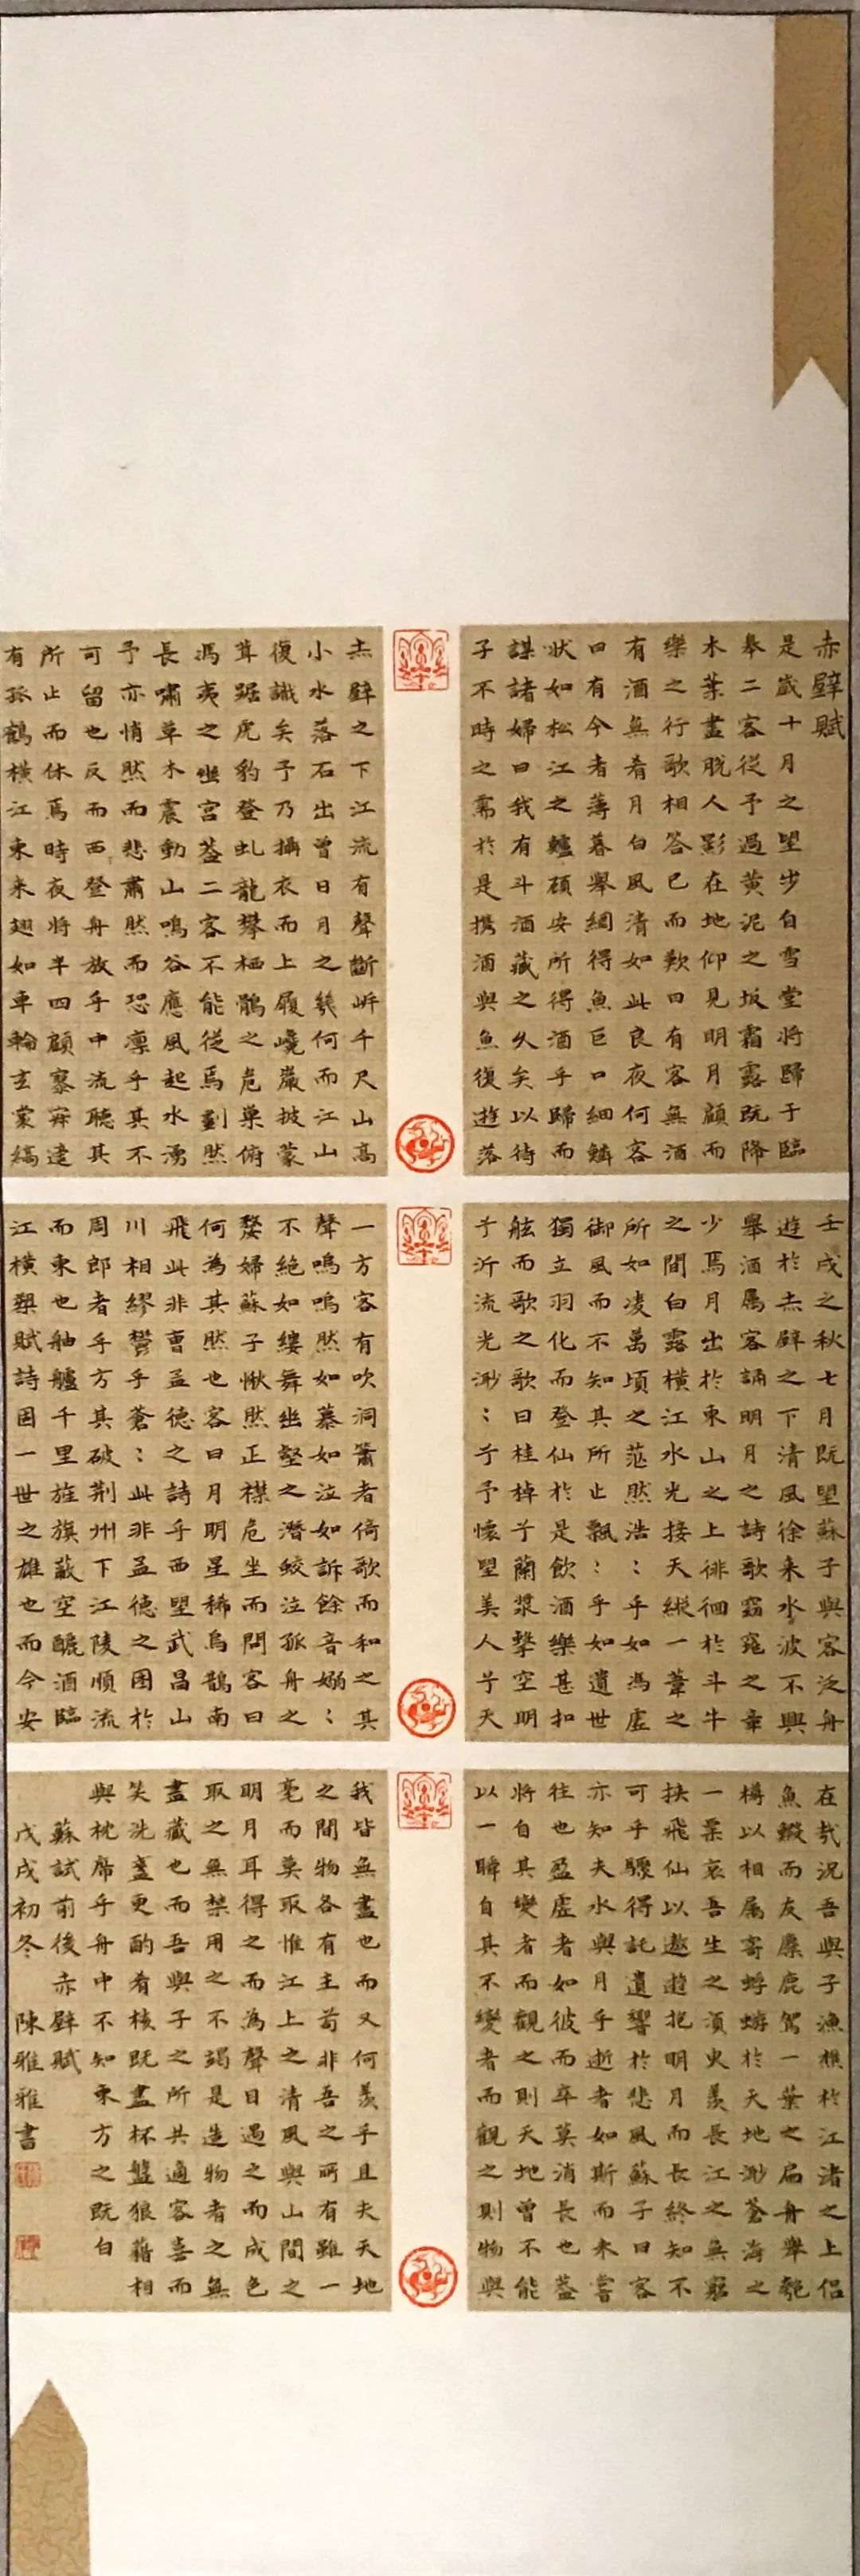 赤壁賦
是歲十月之望步自雪堂將歸于臨
皋二客從予過黃泥之坂霜露既降
木葉盡脫人影在地仰見明月顧而
樂之行歌相答已而歎曰有客無酒
有酒無肴月白風清如此良夜何客
曰有今者薄暮舉網得魚巨口細鱗
狀如松江之鱸顧安所得酒乎歸而
謀諸婦曰我有斗酒藏之久矣以待
子不時之需於是携酒與魚復遊落
赤壁之下江流有聲斷岍千尺山高
小水落石出曾日月之幾何而江山
復識矣予乃攝衣而上履巉巖披蒙
茸踞虎豹登虬龍攀栖鶻之危巢俯
馮夷之幽宮蓋二客不能從焉劃然
長嘯草木震動山鳴谷應風起水湧
予亦悄然而悲肅然而恐凜乎其不
可留也反而西登舟放乎中流聽其
所止而休焉時夜將半四顧寥寂
有孤鶴橫江東來翅如車輪玄蒙縞
壬戌之秋七月既望蘇子與客泛舟
遊於赤壁之下清風徐來水波不興
舉酒屬客誦明月之詩歌窈窕之章
少焉月出於東山之上徘徊於斗牛
之間白露橫江水光接天縱一葦之
所如凌萬頃之茫然浩：乎如馮虛
御風而不知其所止飄：乎如遺世
獨立羽化而登仙於是飲酒樂甚扣
舷而歌之歌曰桂棹兮蘭槳擊空明
兮泝流光渺：兮予懷望美人兮天
一方客有吹洞簫者倚歌而和之其
聲嗚嗚然如慕如泣如訴餘音嫋：
不絕如縷舞幽壑之潛蛟泣孤舟之
嫠婦蘇子愀然正襟危坐而問客曰
何為其然也客曰月明星稀烏鵲南
飛此非曹孟德之詩乎西望武昌山
川相繆鬱乎蒼：此非孟德之困於
周郎者乎方其破荊州下江陵順流
而東也舳艫千里旌旗蔽空釃酒臨
江橫槊賦詩固一世之雄也而今安
在哉況吾與子漁樵於江渚之上侶
魚蝦而友麋鹿駕一葉之扁舟舉匏
樽以相屬寄蜉蝣於天地渺蒼海之
一粟哀吾生之須臾羨長江之無窮
挾飛仙以遨遊抱明月而長終知不
可乎驟得託遺響於悲風蘇子曰客
亦知夫水與月乎逝者如斯而未嘗
往也盈虛者如彼而卒莫消長也蓋
將自其變者而觀之則天地曾不能
以一瞬自其不變者而觀之則物與
我皆無盡也而又何羨乎且夫天地
之間物各有主苟非吾之所有雖一
毫而莫取惟江上之清風與山間之
明月耳得之而為聲目遇之而成色
取之無禁用之不竭是造物者之無
盡藏也而吾與子之所共適客喜而
笑洗盞更酌肴核既盡杯盤狼藉相
與枕席乎舟中不知東方之既白
蘇試前後赤壁賦
戊戌初冬 陳雅雅書